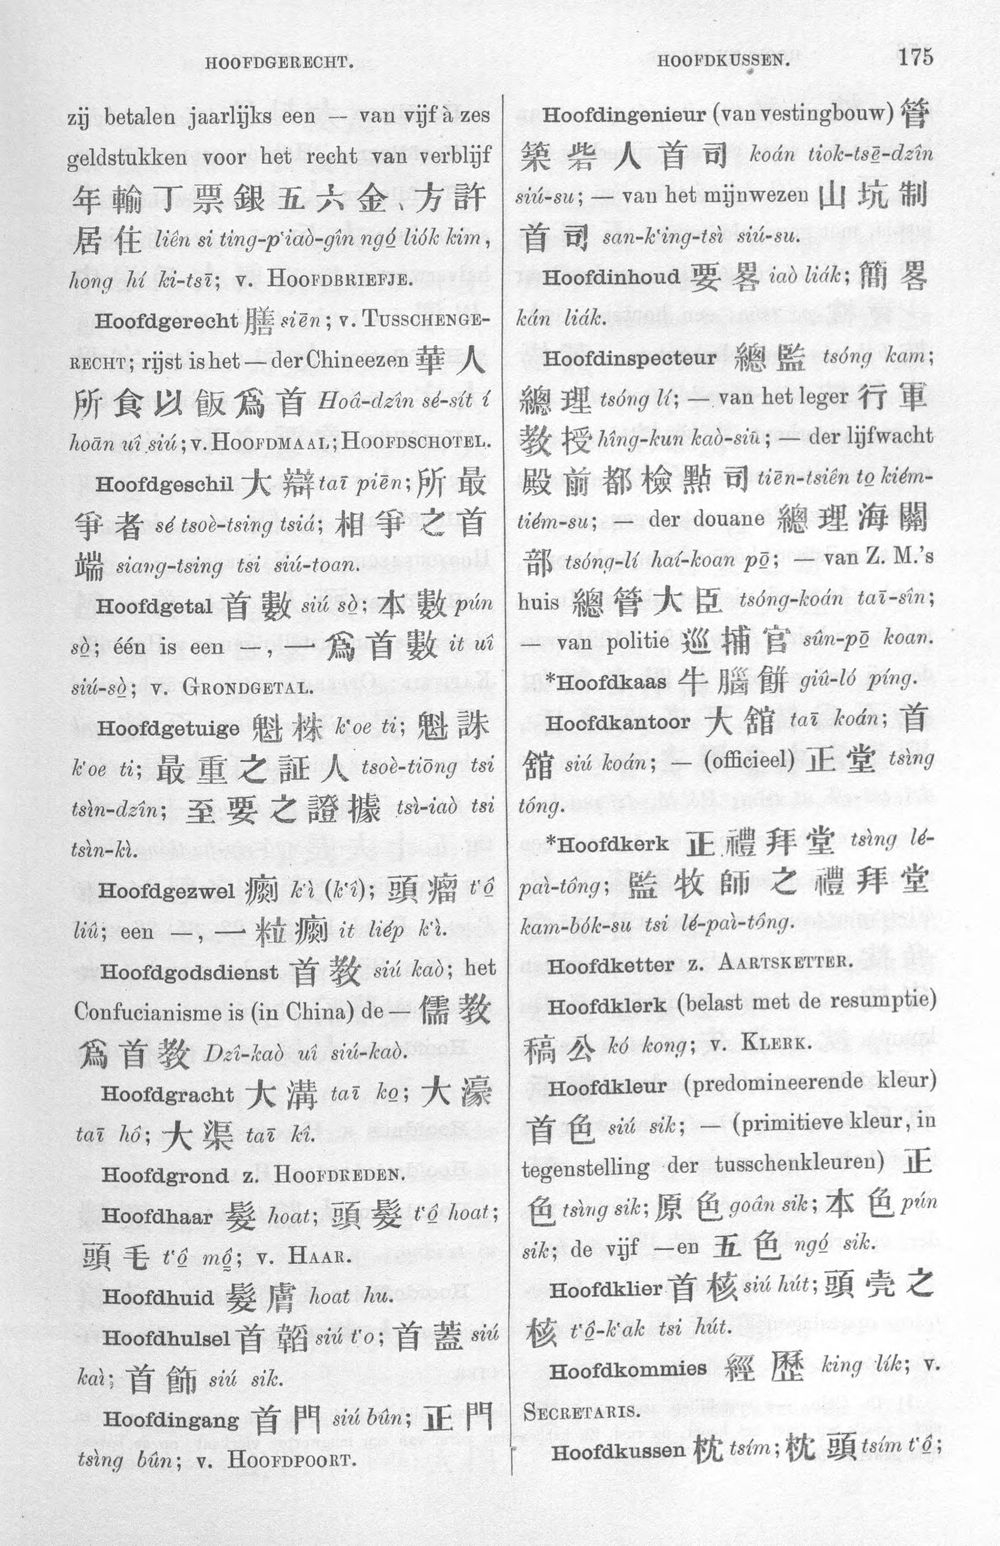 HOOFDGERECHT.
HOOFDKUSSEN. 175
zij betalen jaarlijks een — van vijf à zes
geldstukken voor het recht van verblijf
年輸丁票銀五六金、方許
居住 liên si ting-p'iaò-gîn ngó liók kim,
hong hí ki-tsī; v. HOOFDBRIEFJE.
Hoofdgerecht 膳 siēn; v. TUSSCHENGE-
RECHT; rijst is het — der Chineezen 華人
所食以飯爲首 Hoâ-dzîn sé-sít í
hoān uî siú; v. HOOFDMAAL; HOOFDSCHOTEL.
Hoofdgeschil 大辯 taī piēn; 所最
爭者 sé tsoè-tsing tsiá; 相爭之首
端 siang-tsing tsi siú-toan.
Hoofdgetal 首數 siú sò; 本數 pún
sò; één is een —, 一爲首數 it uî
siú-sò; v. GRONDGETAL.
Hoofdgetuige 魁株 k'oe ti; 魁誅
k'oe ti; 最重之証人 tsoè-tiōng tsi
tsìn-dzîn; 至要之證據 tsì-iaò tsi
tsìn-kì.
Hoofdgezwel 瘌 k'ì (k'î); 頭瘤 t'ô
liû; een —, 一粒瘌 it liép k'ì.
Hoofdgodsdienst 首教 siú kaò; het
Confucianisme is (in China) de — 儒教
爲首教 Dzî-kaò uî siú-kaò.
Hoofdgracht 大溝 taī ko; 大濠
taī hô; 大渠 taī kî.
Hoofdgrond z. HOOFDREDEN.
Hoofdhaar 髮 hoat; 頭髮 t'ô hoat;
頭毛 t'ô mô; v. HAAR.
Hoofdhuid 髮膚 hoat hu.
Hoofdhulsel 首韜 siú t'o; 首蓋 siú
kaì; 首飾 siú sik.
Hoofdingang 首門 siú bûn; 正門
tsìng bûn; v. HOOFDPOORT.
Hoofdingenieur (van vestingbouw) 管
築砦人首司 koán tiok-tsē-dzîn
siú-su; — van het mijnwezen 山坑制
首司 san-k'ing-tsì siú-su.
Hoofdinhoud 要畧 iaò liák; 簡畧
kán liák.
Hoofdinspecteur 總監 tsóng kam;
總理 tsóng lí; — van het leger 行軍
教授 hîng-kun kaò-siū; — der lijfwacht
殿前都檢點司 tiēn-tsiên to kiém-
tiém-su; — der douane 總理海關
部 tsóng-lí haí-koan pō; — van Z. M.'s
huis 總管大臣 tsóng-koán taī-sîn;
— van politie 巡捕官 sûn-pō koan.
*Hoofdkaas 牛腦餅 giû-ló píng.
Hoofdkantoor 大舘 taī koán; 首
舘 siú koán; — (officieel) 正堂 tsìng
tóng.
*Hoofdkerk 正禮拜堂 tsìng lé-
paì-tông; 監牧師之禮拜堂
kam-bók-su tsi lé-paì-tông.
Hoofdketter z. AARTSKETTER.
Hoofdklerk (belast met de resumptie)
稿公 kó kong; v. KLERK.
Hoofdkleur (predomineerende kleur)
首色 siú sik; — (primitieve kleur, in
tegenstelling der tusschenkleuren) 正
色 tsìng sik; 原色 goân sik; 本色 pún
sik; de vijf —en 五色 ngó sik.
Hoofdklier 首核 siú hút; 頭壳之
核 t'ô-k'ak tsi hút.
Hoofdkommies 經歷 king lík; v.
SECRETARIS.
Hoofdkussen 枕 tsím; 枕頭 tsím t'ô;